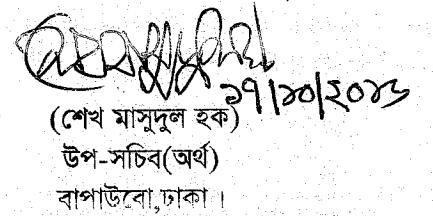 ১৭/১০/২০১৬
(শেখ মাসুদুল হক)
উপ-সচিব(অর্থ)
বাপাউবো,ঢাকা ।